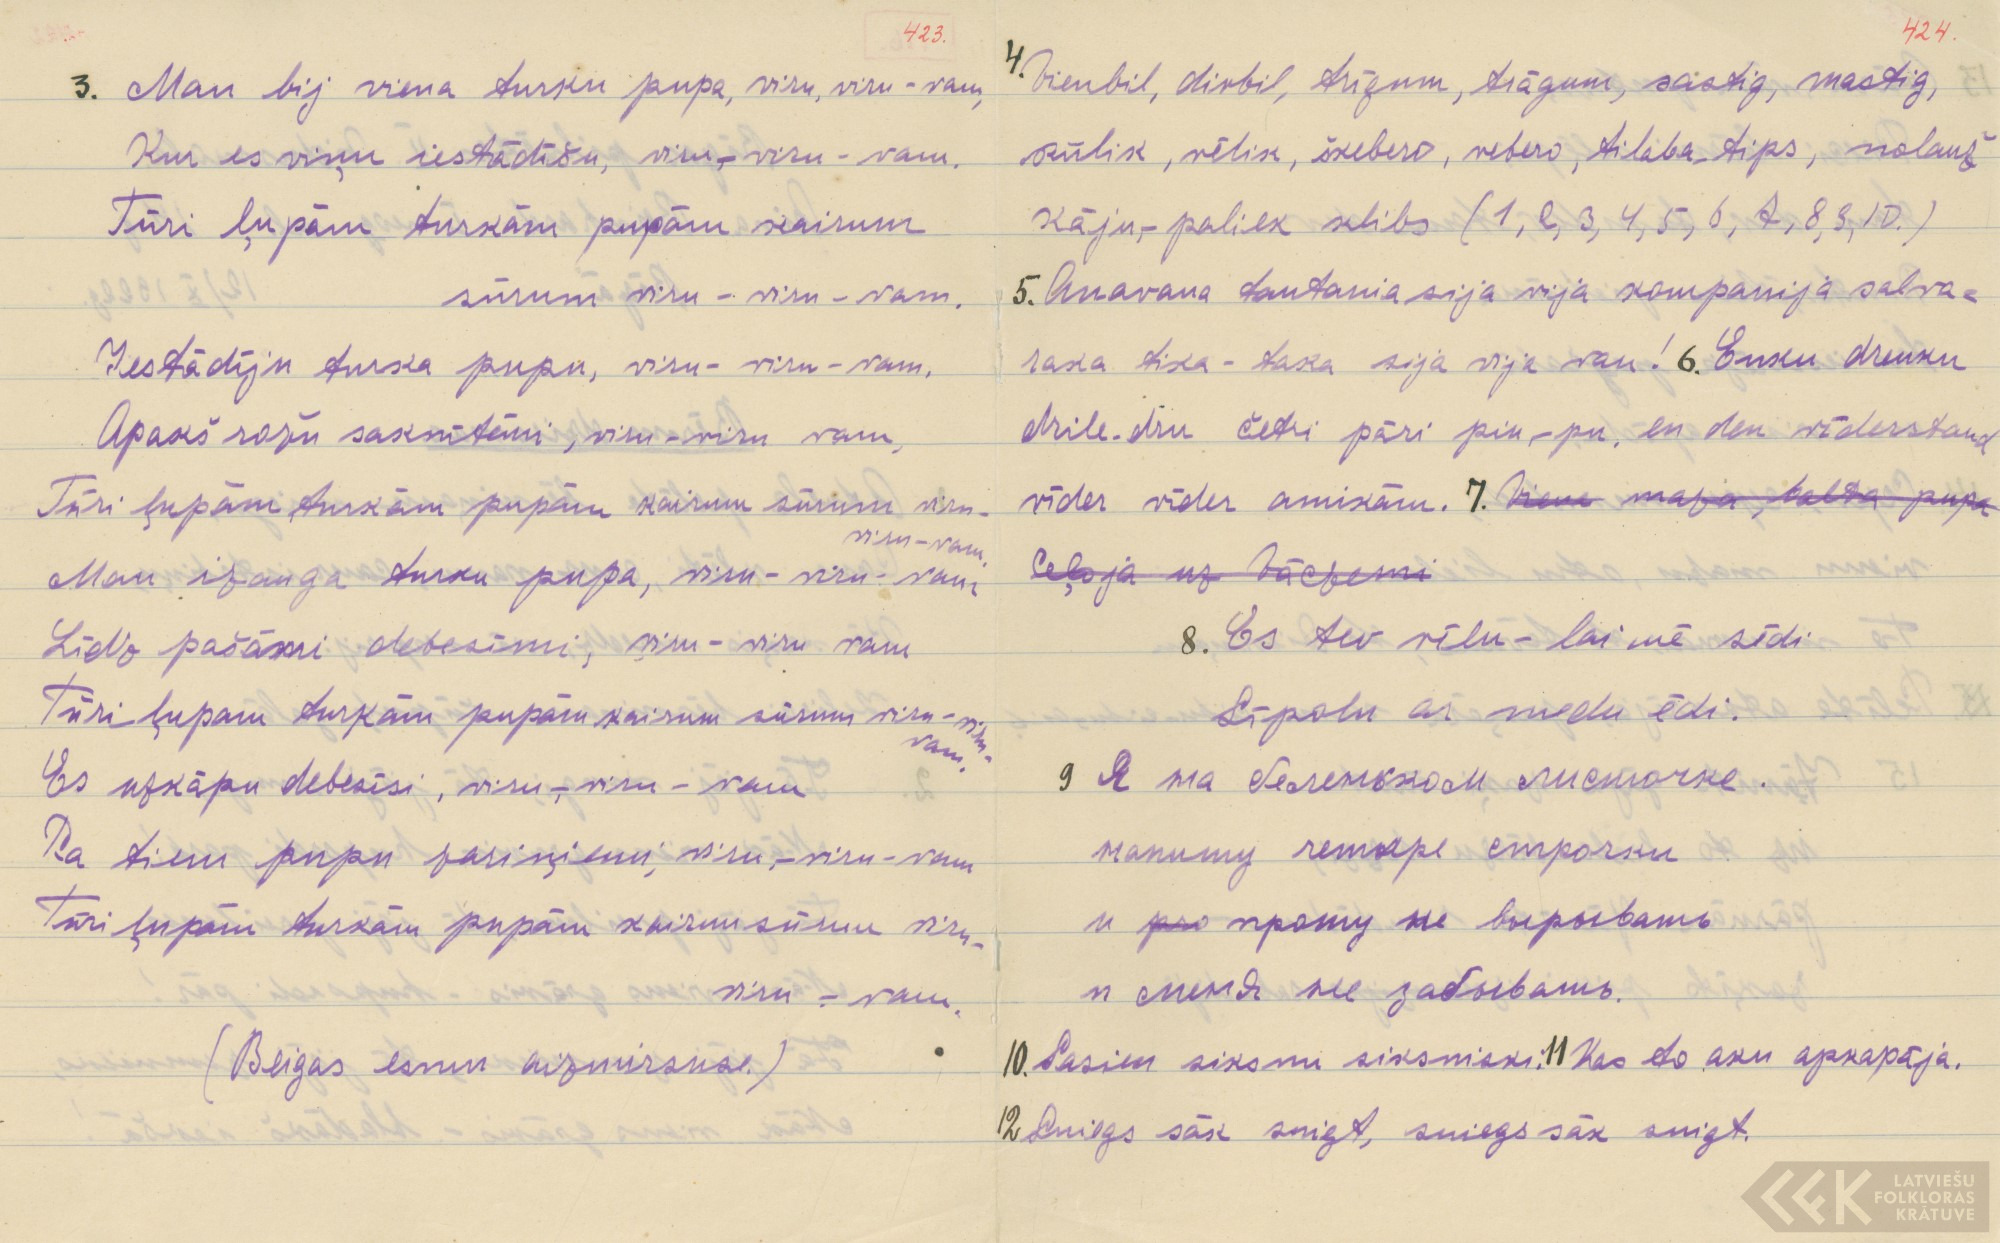 423.
3. Man bij viena turku pupa, viru, viru-vam,
Kur es viņu iestādīšu, viru,-viru-vam.
Tūri ļupām turkām pupām kairum
sūrum viru-viru-vam.
Iestādīju turka pupu, viru-viru-vam.
Apakš rožu saknītēmi, viru-viru vam,
Tūri ļupām turkām pupām kairum sūrum viru-
viru-vam.
Man izauga turku pupa, viru-viru-vam,
Līdz pašāmi debesīmi, viru-viru vam
Tūri ļupam turkām pupām kairum sūrum viru-viru-
vam.
Es uzkāpu debesīsi, viru,-viru-vam
Pa tiem pupu zariņiemi, viru,-viru-vam
Tūri ļupām turkām pupām kairum sūrum viru-
viru-vam.
(Beigas esmu aizmirsuse.)
424.
4. Vienbil, divbil, trīgum, trāgum, sastig, mastig,
skūlik, vēlik, škebero, vebero, tilaba-tips, nolauž
kāju,-paliek klibs (1, 2, 3, 4, 5, 6, 7, 8, 9, 10.)
5. Anavana tantania sija vija kompanija salva=
raka tika-taka sija vija van! 6. Enku drenku
drile-dru četri pāri piu,-pu, en den vīderstand
vīder vīder amikām. 7. Viena maza, balta pupa
Ceļoja uz Vāczemi
8. Es tev vēlu-laimē sēdi
Sīpolu ar medu ēdi.
9 Я на беленьком листочке.
напишу четыре строчки
и про прошу не вырывать
и меня не забывать.
10. Sasien siksnu siksniski. 11 Kas to aku apkapāja.
12 Sniegs sāk snigt, sniegs sāk snigt.
LATVIEŠU
FOLKLORAS
KRĀTUVE